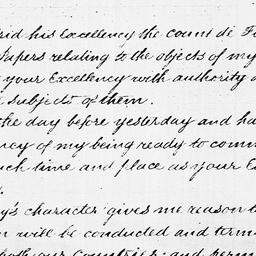 his Excellency the count di
Papers relating to the objects of my
your Excellency with authority
subjects of them.
the day before yesterday and ha
ncy of my being ready to comm
uch time and place as your E
y's character gives me reason t
n will be conducted and term
both our Countries; and perm